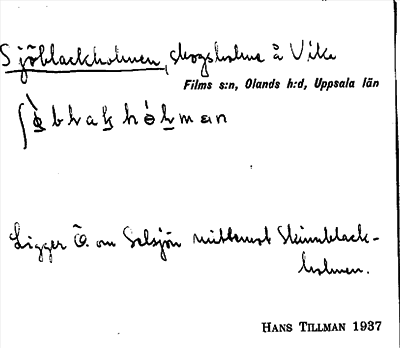 Sjöblackholmen, skogsholme å Vika
Films s:n, Olands h:d, Uppsala län
Ligger Ö. om Selsjön mittemot Skinnblack-
holmen.
HANS TILLMAN 1937